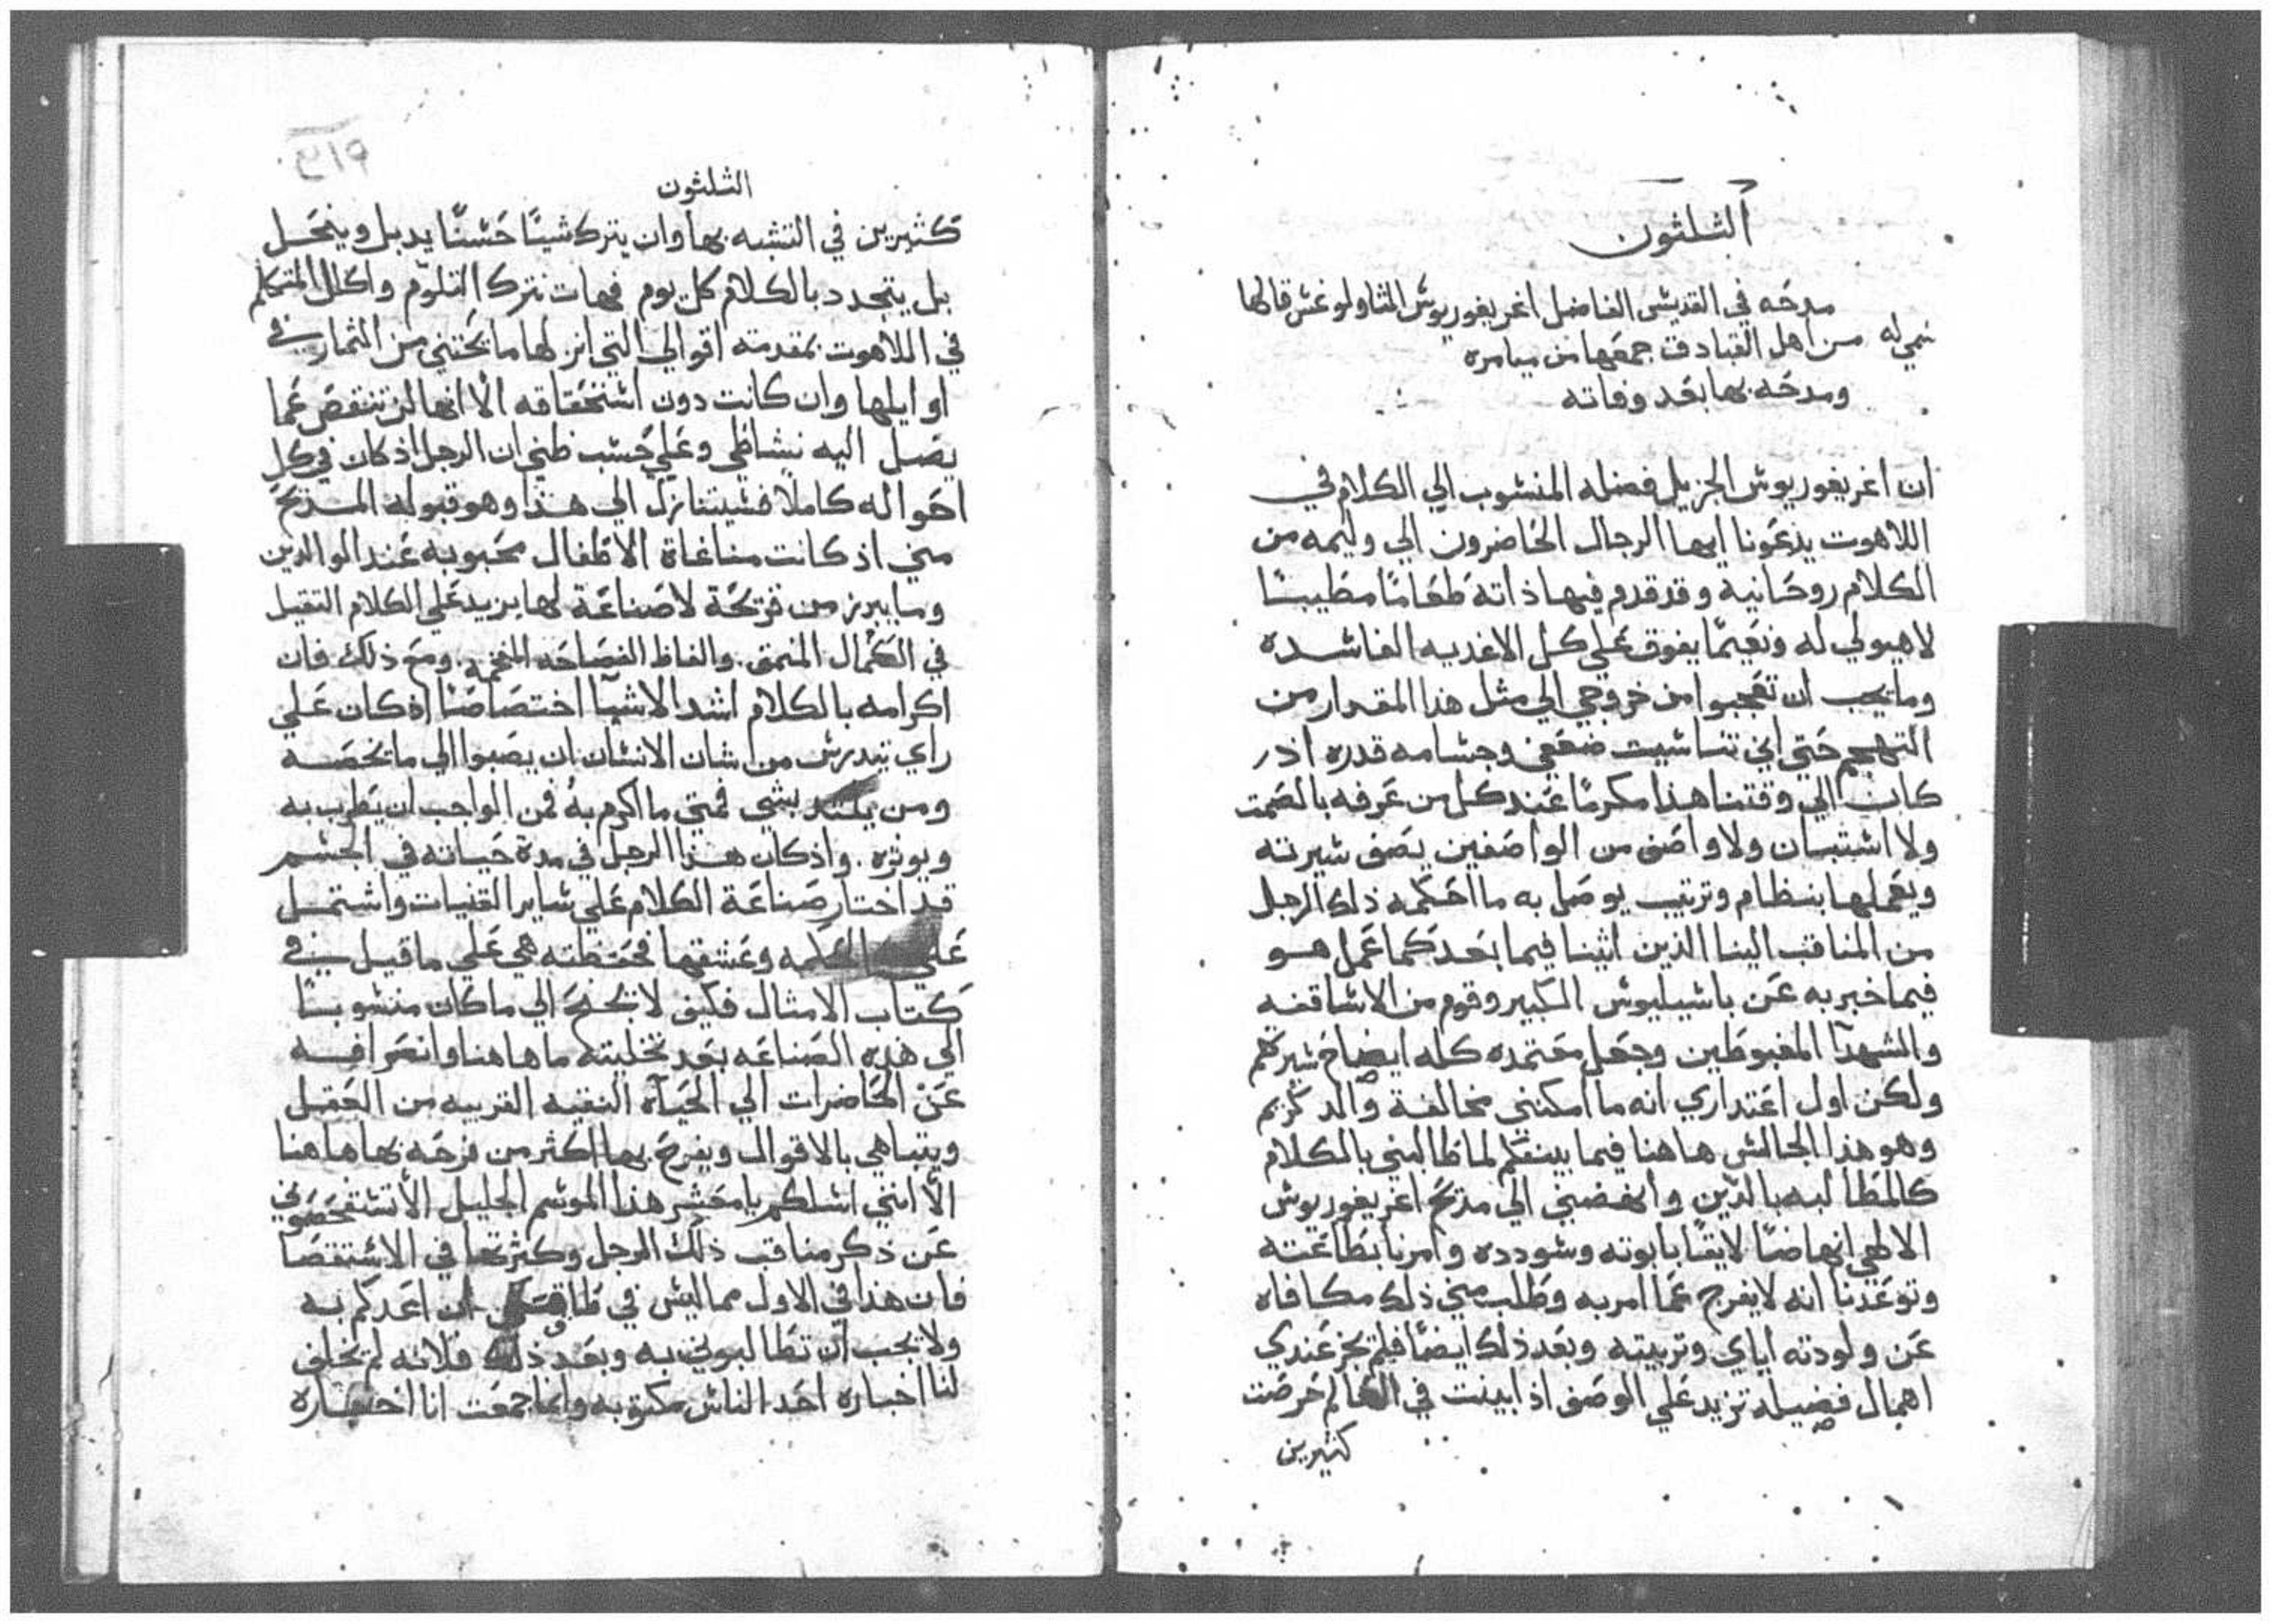 الثلثون
مدحه في القديس الفاضل اغريغوريوس الثاولوغس قالها
سمي له من اهل القبادق جمعها من ميامره
ومدحه بها بعد وفاته
ان اغريغوريوس الجزيل فضله المنسوب الي الكلام في
اللاهوت يدعونا ايها الرجال الحاضرون الي وليمه من
الكلام روحانيه وقد قدم فيها ذاته طعامًا مطيبًا
لاهيولي له ونعيمًا يفوق علي كل الاغديه الفاسده
وما يجب ان تعجبوا من خروجي الي مثل هذا المقدار من
التهجم حتي اني تناسيت ضعفي وجسامه قدره اذ
كان الي وقتنا هذا مكرمًا عند كل من عرفه بالصمت
ولا استبان ولا واصف من الواصفين يصف سيرته
ويعملها بنظام وترتيب يوصل به ما احكمه ذلك الرجل
من المناقب الينا الذين اتينا فيما بعد كما عمل هو
فيما خبر به عن باسيليوس الكبير وقوم من الاساقفه
والشهدآ المغبوطين وجعل معتمده كله ايضاح سيرهم
ولكن اول اعتداري انه ما امكنني مخالفة والد كريم
وهو هذا الجالس هاهنا فيما بينكم لما طالبني بالكلام
كالمطالبه بالدين وانهضني الي مديح اغريغوريوس
الالهي انهاضًا لايقًا بابوته وسودده وامرنا بطاعته
وتوعدنا انه لا يفرج عما امر به وطلب مني ذلك مكافاه
عن ولودته اياي وتربيته وبعد ذلك ايضًا فلم يجز عندي
اهمال فضيله تزيد علي الوصف اذ ابينت في العالم حرضت
كثيرين
٢١٩
الثلثون
كثيرين في التشبه بها وان يترك شيئًا حسنًا يدبل وينحل
بل يتجدد بالكلام كل يوم فهات نترك التلوم واكلل المتكلم
في اللاهوت بمقدمة اقوالي التي انزلها ما يجتني من الثمار في
اوايلها وان كانت دون استحقاقه الا انها لن تنقص عما
يصل اليه نشاطي وعلي حسب ظني ان الرجل اذ كان في كل
احواله كاملا فسيتنازل الي هذا وهو قبوله المديح
مني اذ كانت مناغاة الاطفال محبوبه عند الوالدين
وما يبرز من قريحة لا صناعة لها يزيد علي الكلام الثقيل
في الكمال المنمق والفاظ الفصاحه المفخمه ومع ذلك فان
اكرامه بالكلام اشد الاشيآ اختصاصًا اذ كان علي
راي سيدرس من شان الانسان ان يصبوا الي ما يخصه
ومن يلتد بشي فمتي ما اكرم به فمن الواجب ان يطرب به
ويوثره واذ كان هذا الرجل في مدة حياته في الجسم
قد اختار صناعة الكلام علي ساير القنيات واشتمل
علي الحكمه وعشقها فحفظته هي علي ما قيل في
كتاب الامثال فكيف لا يجنح الي ما كان منسوبًا
الي هذه الصناعه بعد تخليته ما هاهنا وانصرافه
عن الحاضرات الي الحيآة النقيه القريبه من العقل
ويتباهي بالاقوال ويفرح بها اكثر من فرحه بها هاهنا
الا انني اسلكم يا معشر هذا الموسم الجليل الا تستفحصوني
عن ذكر مناقب ذلك الرجل وكثرتها في الاستقصا
فان هذا في الاول مما ليس في طاقتي ان اعدكم به
ولا يجب ان تطالبوني به وبعد ذلك فلانه لم يخلف
لنا اخباره احد الناس مكتوبه وانما جمعت انا اختصاره